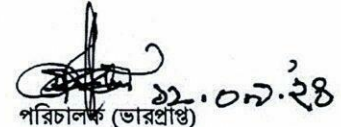 ১২.০৯.২৪
পরিচালক (ভারপ্রাপ্ত)